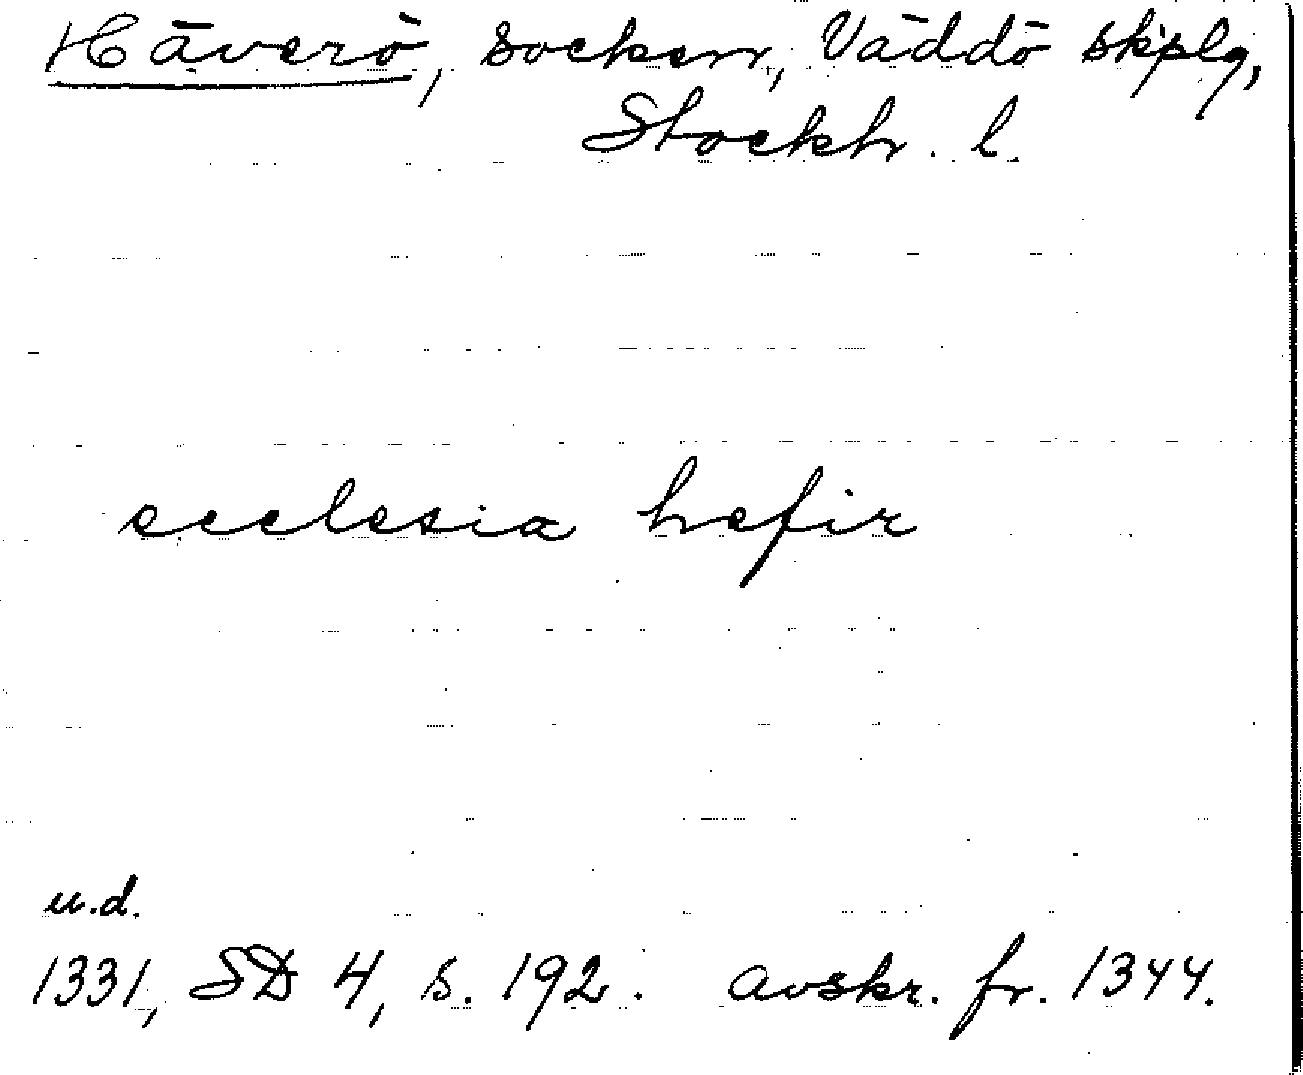 Häverö, socken, Väddö skplg,
Stockh. l.
ecclesia hefir
u.d.
1331, SD 4, s. 192. avskr. fr. 1344.